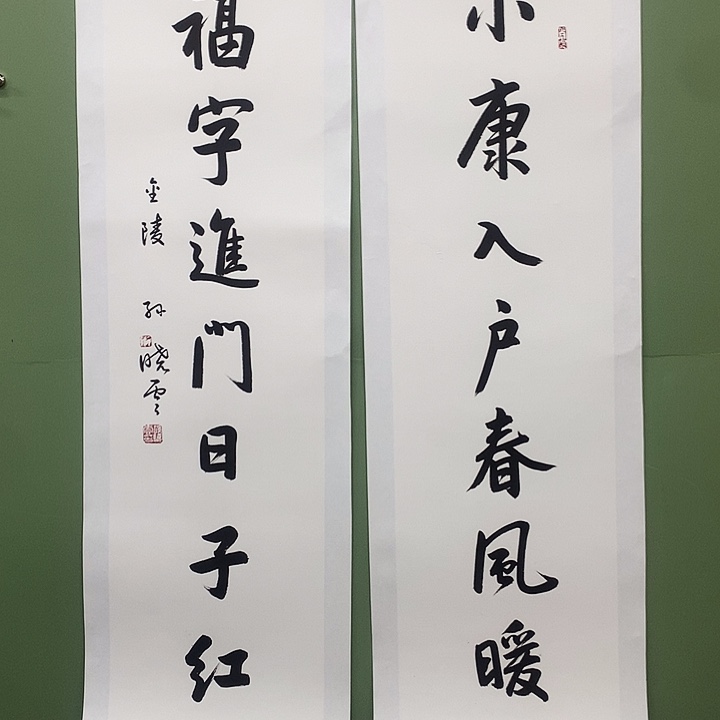 小康入户春風暖
福字進門日子红
金陵 孙晓雲